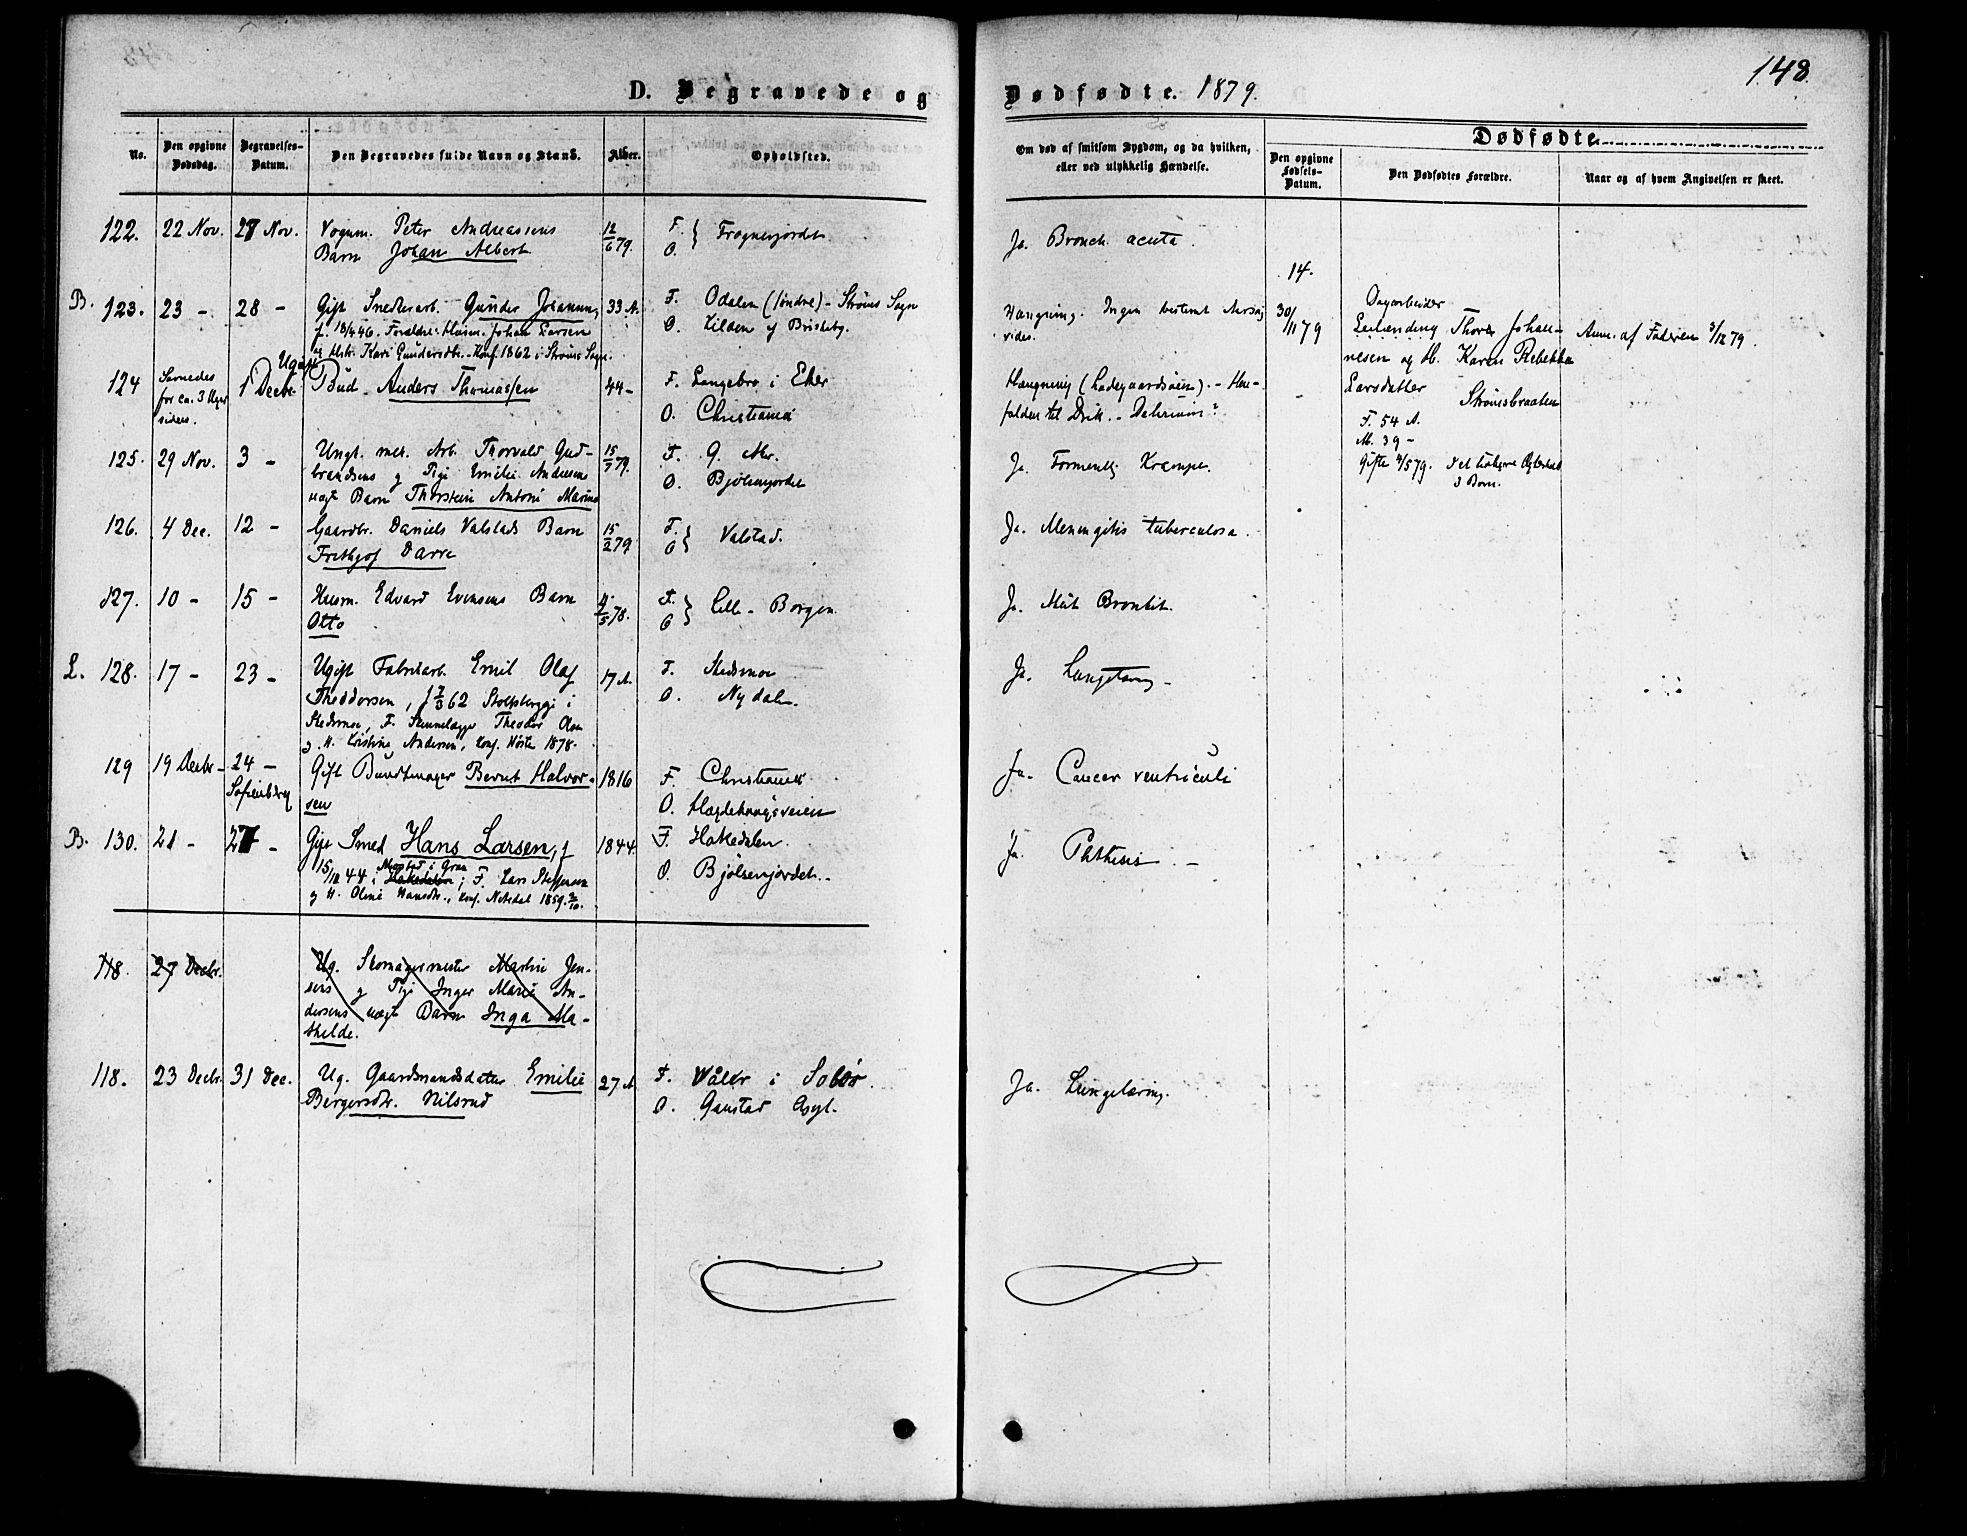 148.
D. Begravede og Dødfødte. 1879.
No.
Den opgivne Dødsdag.
Begravelses-Datum.
Den Begravedes fulde Navn og Stand.
Alder.
Opholdssted.
Om død af smitsom Sygdom, og da hvilken,
eller ved ulykkelig Hændelse.
Dødfødte
Den opgivne Fødsels-Datum.
Den Dødfødtes Forældre.
Naar og af hvem Angivelsen er skeet.
122. 22 Nov. 27 Nov. Vognm. Peter Andreassens 12/6 79. F. } Frognerjordet
Barn Johan Albert O.
Ja. Bronch. acuta.
B. 123. 23 - 28 - Gift Snedkerarb. Gunder Johannes 33 A. F. Odalen (søndre) - Strøms Sogn
f. 18/4 46. Forældre: Husm. Johan Larsen O. Lilden
og Hstr. Kari Gundersdtr. - Konf. 1862 i Strøms Sogn.
Hængning. Ingen bestemt Aarsag
vides.
14.
30/11 79
Dagarbeider
Leilending Thore Johan-
nesen og H. Karen Rebekka
Larsdatter Strømsbraaten
F. 54 A.
M. 39 -
Gifte 4/5 79.
3 Børn.
Anm. af Faderen 3/12 79.
124 Savnedes 1 Decbr. Ugift Bud - Anders Thomassen 44 - F. Langebro i Eker
for ca. 3 Uger O. Christiania
siden.
Hængning (Ladegaardsøen). - Hen-
falden til Drik. - Delirium?
125. 29 Nov. 3 - Ungk. Arb. Thorvald Gud- 15/7 79. F. G. Aker.
brandsens og Pige Emilie Andersens O. Bjølsenjordet
uægt Barn Thorstein Antoni Marius
Ja. Formentlig Krampe.
126. 4 Dec. 12 - Gaardbr. Daniels Valstads Barn 15/2 79 F. } Valstad.
Frithjof Darre O
Ja. Meningitis tuberculosa.
127. 10 - 15 - Husm. Edvard Evensens Barn 4/5 78. F. } Lille - Borgen
Otto O
Ja. Akut Bronkit.
L. 128. 17 - 23 - Ugift Fabrikarb. Emil Olaf 17 A. F. Skedsmoe
Theodorsen, f 7/3 62 i O. Nydalen.
Skedsmoe, F. Theodor Olsen
og M. Kristine Andersen, Konf. Høsten 1878.
Ja. Lungetæring -
129 19 Decbr - 24 - Gift Buntmager Bernt Halvor- 1816 F. Christiania
Sofienberg sen O. Hegdehaugsveien
Ja. Cancer ventriculi
B. 130. 21 - 27 - Gift Smed Hans Larsen, f 1844. F. Hakedalen.
15/12 44 i Gran Hakedalen; F. Lars Steffensen O. Bjølsenjordet. -
og M. Oline Hansdtr., Konf. Nitedal 1859. 2/10.
Ja. Phthisis -
118. 27 Decbr. Ug. Skomagermester Martin Jen-
sens og Pige Inger Marie An-
dersens uægte Barn Inga Ma-
thilde.
118. 23 Decbr. 31 Dec. Ug. Gaardmandsdatter Emilie 27 A F. Våler i Solør.
Bergersdtr. Nilsrud O. Gaustad Asyl.
Ja. Lungetæring.